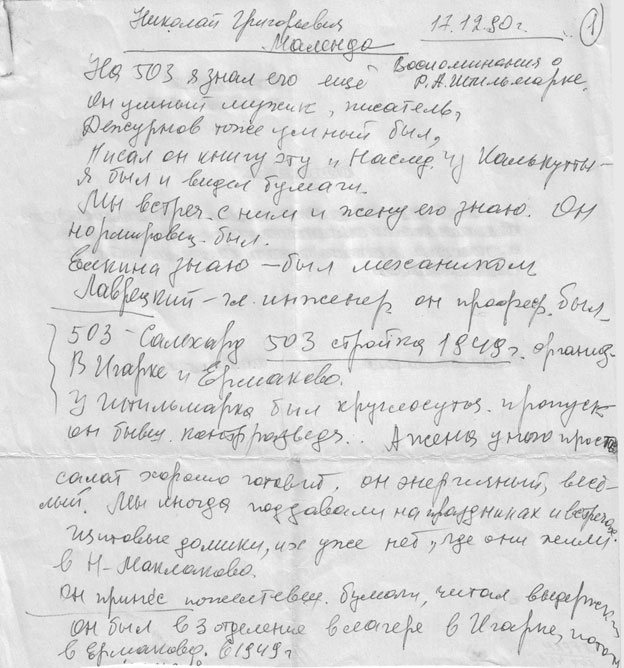 Николай Григорьевич 17.12.90г. 1
Маленда
Воспоминания о
На 503 я знал его ещё Р.А. Штильмарке.
Он умный мужик, писатель,
Дежурнов тоже умный был,
Писал он книгу эту „Наслед. из Калькутты -
я был и видел бумаги.
Мы встреч. с ним и жену его знаю. Он
нормировщ. был.
знаю - был механиком
Лаврецкий - гл. инженер он профес. был
503 - Салехард 503 стройка 1949г. организ.
В Игарке и Ермаково.
У Штильмарка был круглосуточ. пропуск
он бывш. контрразведч.. А жена у него просто
салат хорошо готовит, он энергичный, весё-
лый. Мы иногда поддавали на праздниках и встречах.
Щитовые домики, их уже нет, где они жили.
в Н-Маклаково.
Он принёс пожелтевш. бумаги, читал выдержки
он был в 3 отделение в лагере в Игарке, потом
в Ермаково. в 1949г